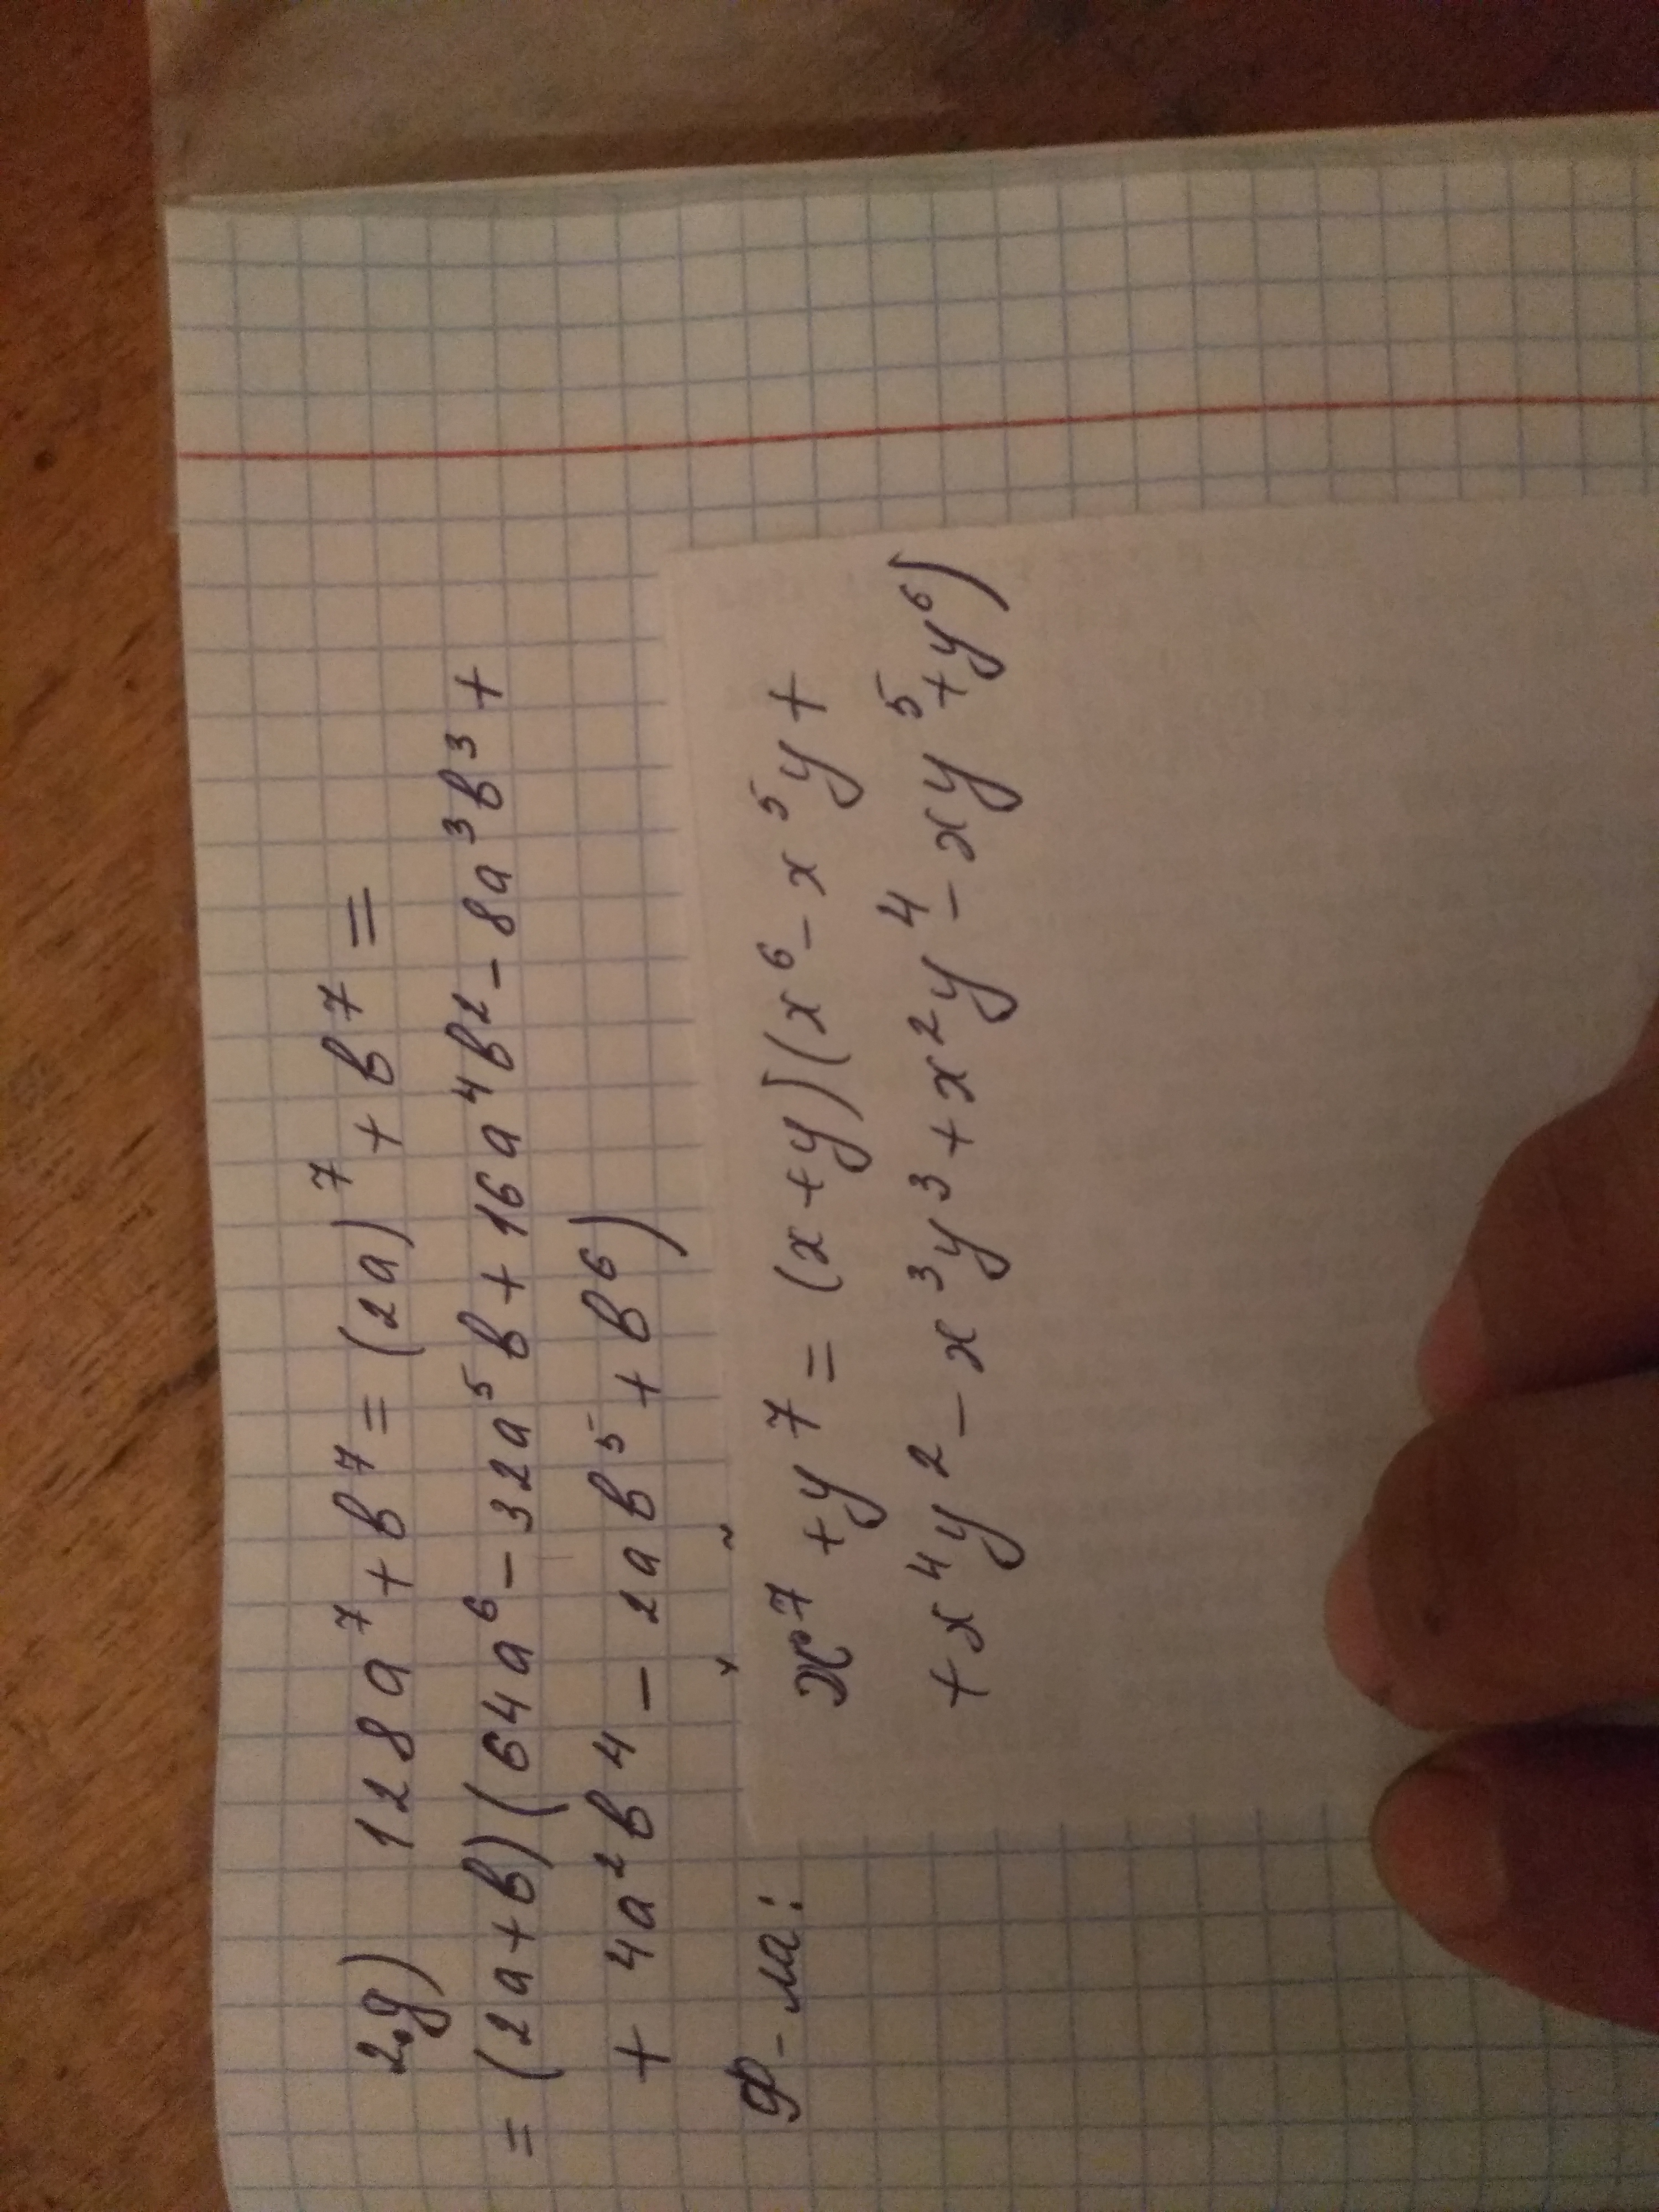 2.д) 128a⁷ + b⁷ = (2a)⁷ + b⁷ =
= (2a + b)(64a⁶ - 32a⁵b + 16a⁴b² - 8a³b³ +
+ 4a²b⁴ - 2ab⁵ + b⁶)
Ф-ла:
x⁷ + y⁷ = (x + y)(x⁶ - x⁵y +
+ x⁴y² - x³y³ + x²y⁴ - xy⁵ + y⁶)